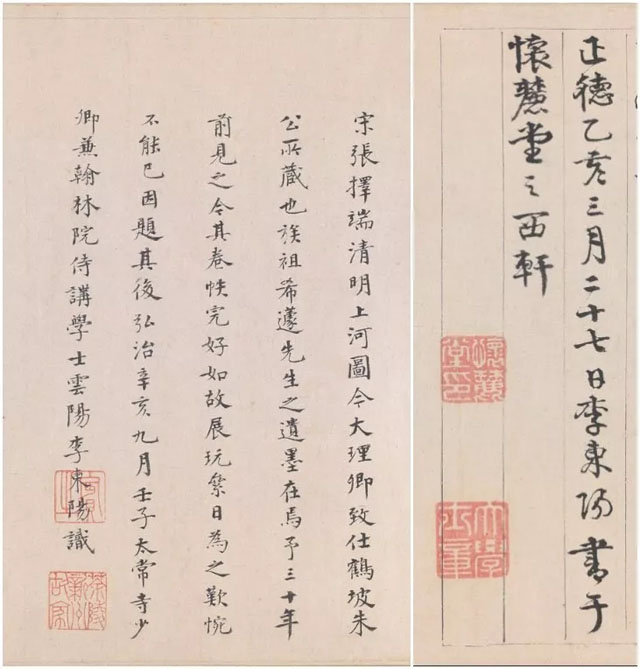 宋張擇端清明上河圖今大理卿致仕鶴坡朱
公所藏也族祖希蘧先生之遺墨在焉予三十年
前見之今其卷帙完好如故展玩累日為之歎惋
不能已因題其後弘治辛亥九月壬子太常寺少
卿兼翰林院侍講學士雲陽李東陽識
正德乙亥三月二十七日李東陽書于
懷麓堂之西軒
懷麓
堂印
大學
士章